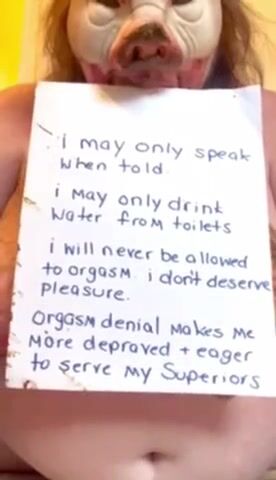 i may only speak
when told.
i may only drink
water from toilets
i will never be allowed
to orgasm. i don't deserve
pleasure.
Orgasm denial makes me
more depraved + eager
to serve my Superiors